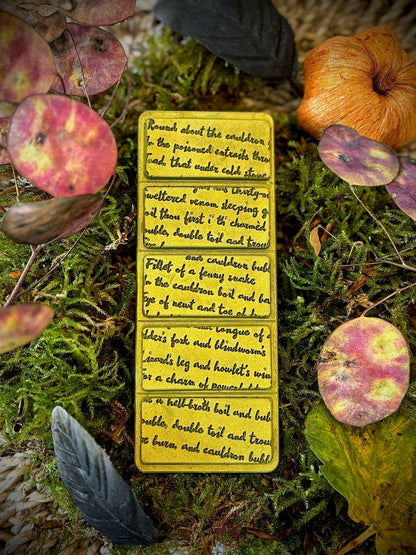 Round about the cauldron g
In the poisoned entrails thro
Toad, that under cold stone
and thirty-on
weltered venom sleeping g
oil thou first i' th' charmed
ouble, double toil and trou
and cauldron bubb
Fillet of a fenny snake
In the cauldron boil and ba
ye of newt and toe of
tongue of
der's fork and blindworm's
izard's leg and howlet's win
or a charm of powerful
e a hell-broth boil and bub
ouble, double toil and trou
re burn, and cauldron bubb